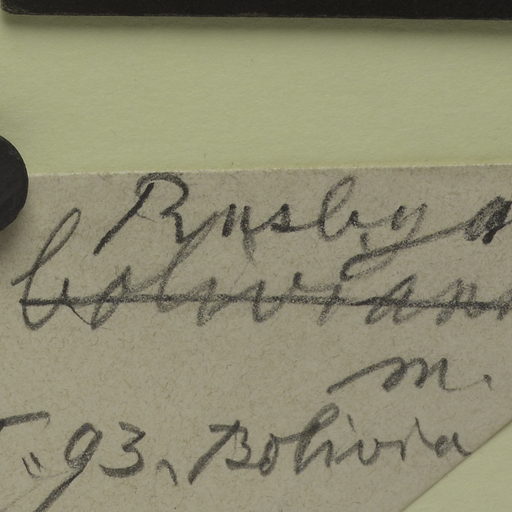 Rusbya
boliviana
m.
93, Bolivia